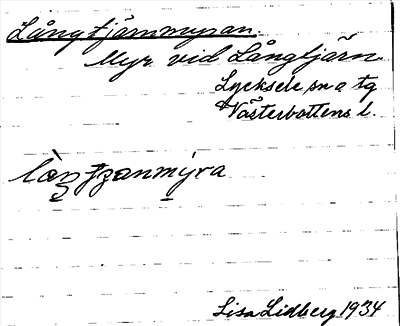 Långtjärnmyran
Myr vid Långtjärn
Lycksele sn o tg
Västerbottens l.
Lisa Lidberg 1934